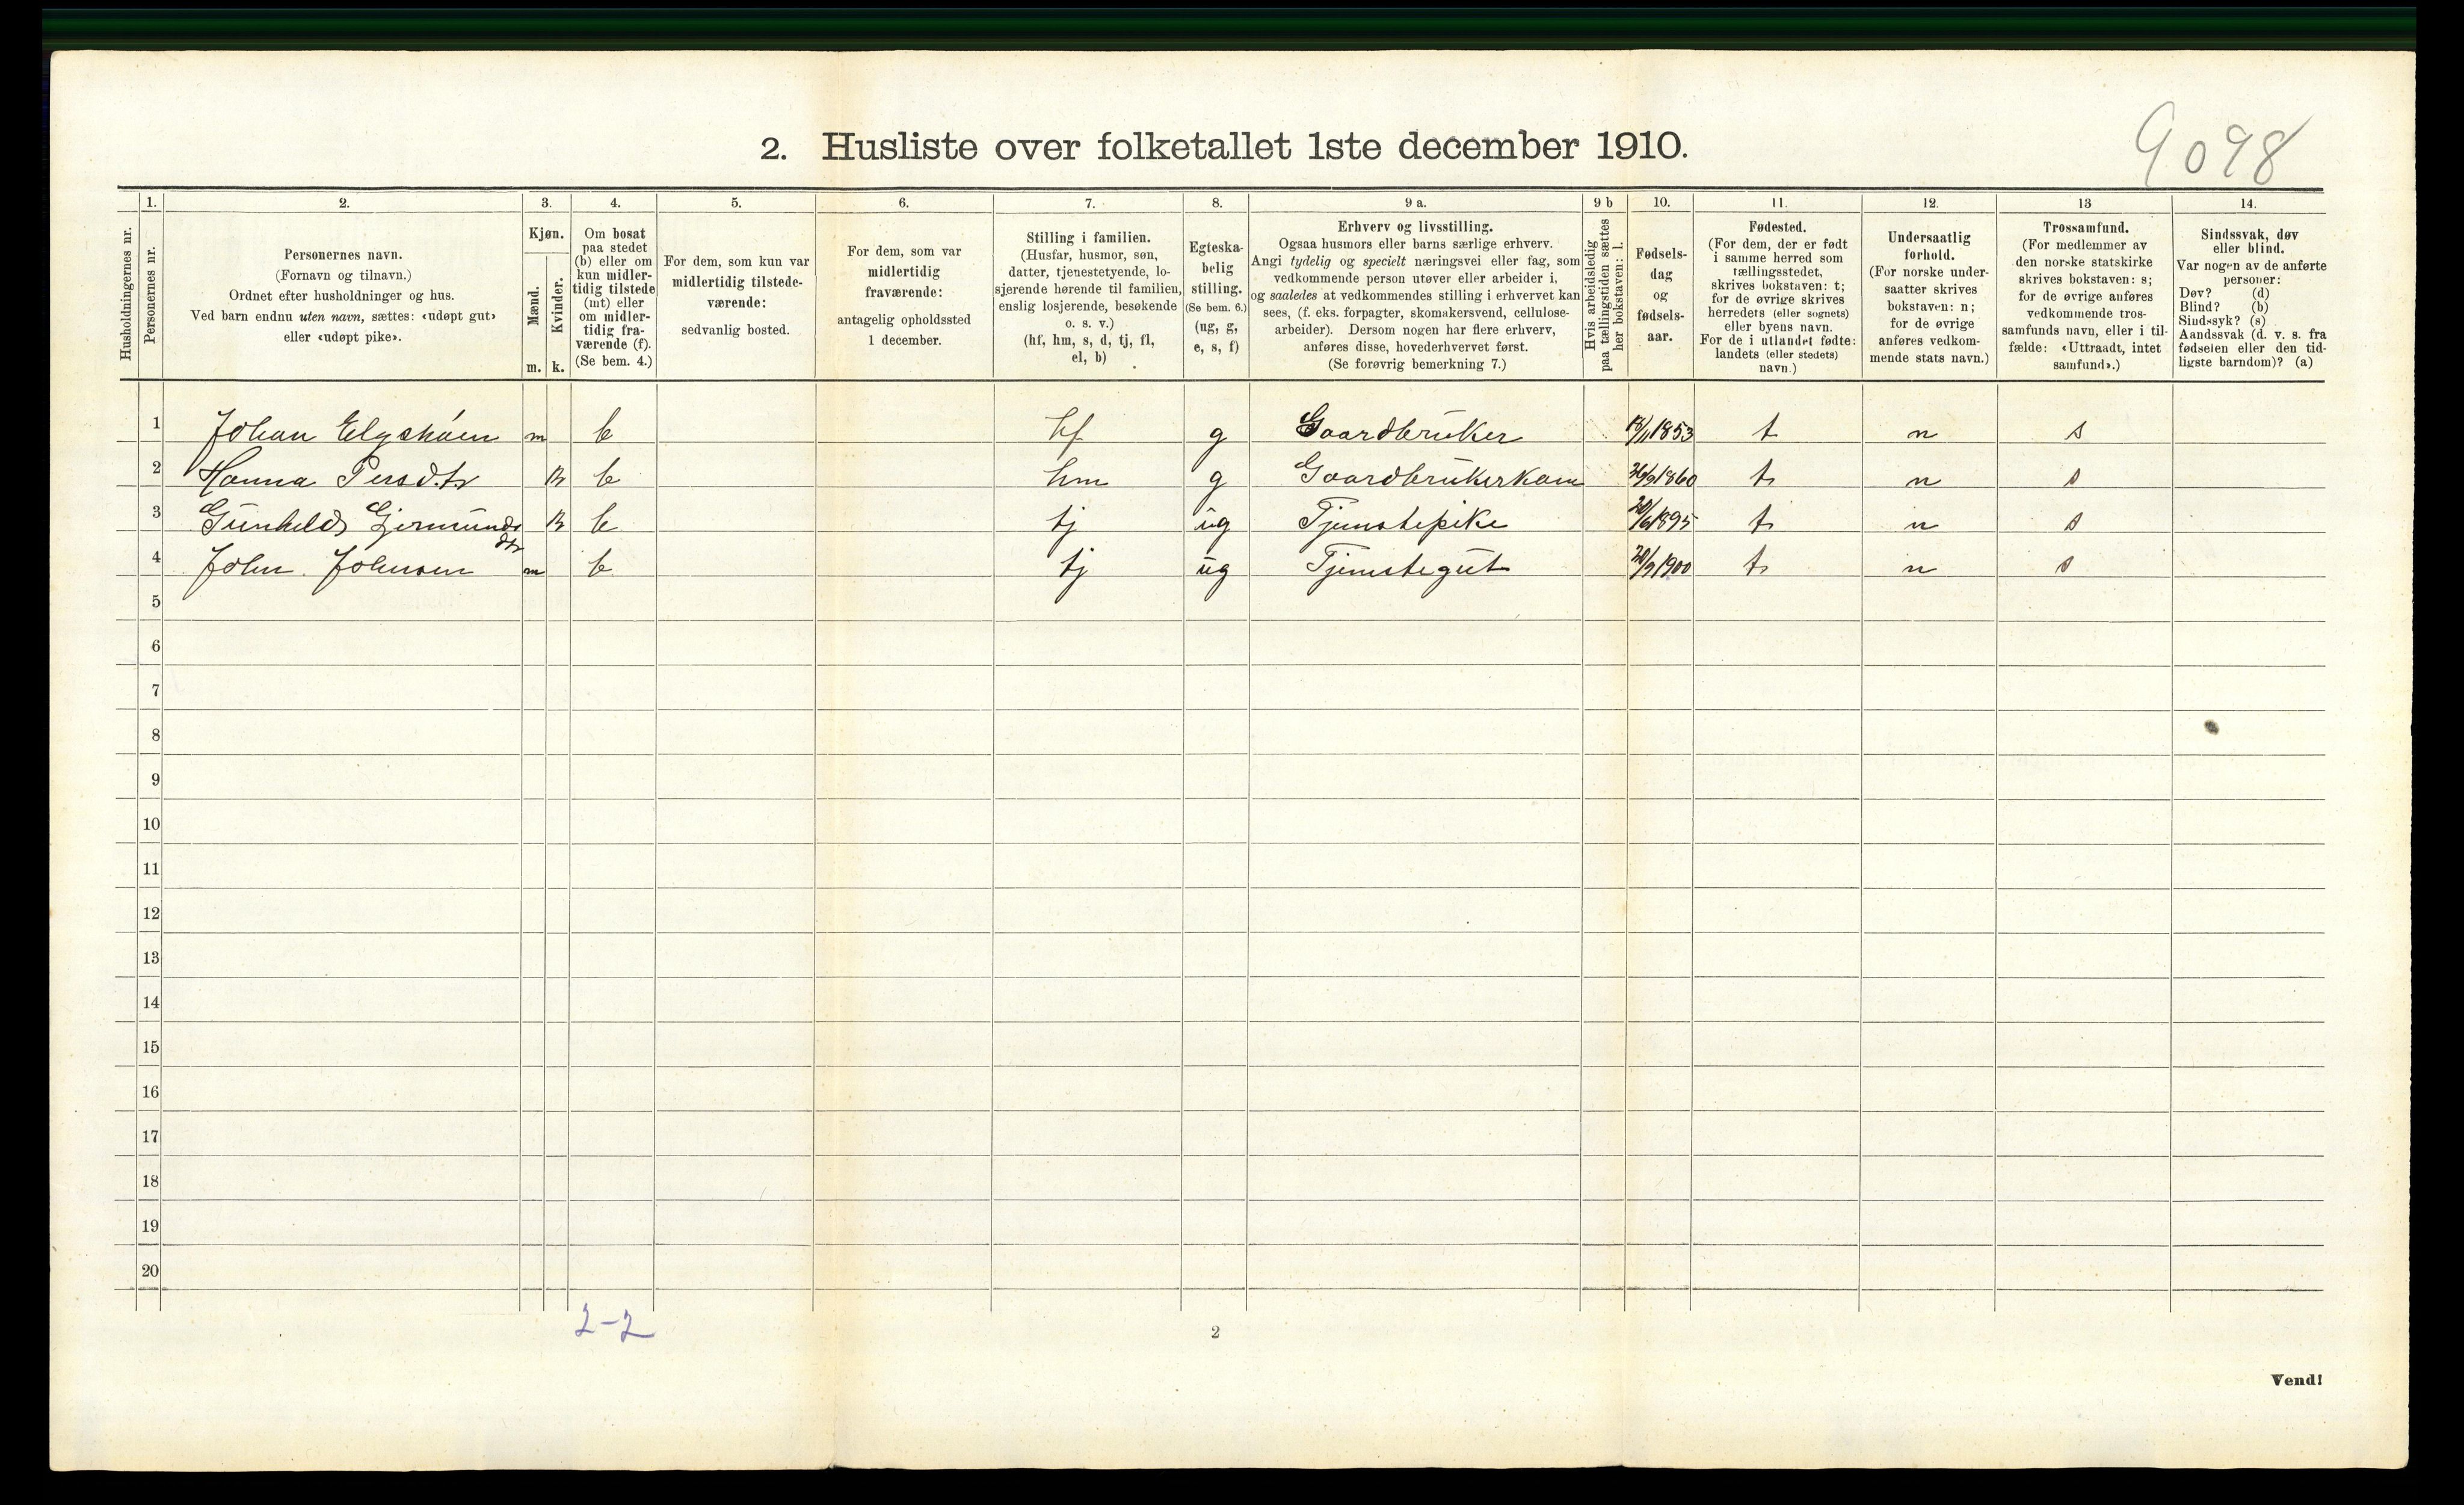 9098
2. Husliste over folketallet 1ste december 1910.
Husholdningernes nr.
1. Personernes nr.
2. Personernes navn.
(Fornavn og tilnavn.)
Ordnet efter husholdninger og hus.
Ved barn endnu uten navn, sættes: «udøpt gut»
eller «udøpt pike».
3. Kjøn.
Mænd. m.
Kvinder. k.
4. Om bosat
paa stedet
(b) eller om
kun midler-
tidig tilstede
(mt) eller
om midler-
tidig fra-
værende (f).
(Se bem. 4.)
5. For dem, som kun var
midlertidig tilstede-
værende:
sedvanlig bosted.
6. For dem, som var
midlertidig
fraværende:
antagelig opholdssted
1 december.
7. Stilling i familien.
(Husfar, husmor, søn,
datter, tjenestetyende, lo-
sjerende hørende til familien,
enslig losjerende, besøkende
o. s. v.)
(hf, hm, s, d, tj, fl,
el, b)
8. Egteska-
belig
stilling.
(Se bem. 6.)
(ug, g,
e, s, f)
9 a. Erhverv og livsstilling.
Ogsaa husmors eller barns særlige erhverv.
Angi tydelig og specielt næringsvei eller fag, som
vedkommende person utøver eller arbeider i,
og saaledes at vedkommendes stilling i erhvervet kan
sees, (f. eks. forpagter, skomakersvend, cellulose-
arbeider). Dersom nogen har flere erhverv,
anføres disse, hovederhvervet først.
(Se forøvrig bemerkning 7.)
9 b Hvis arbeidsledig
paa tællingstiden sættes
her bokstaven: l.
10. Fødsels-
dag
og
fødsels-
aar.
11. Fødested.
(For dem, der er født
i samme herred som
tællingsstedet,
skrives bokstaven: t;
for de øvrige skrives
herredets (eller sognets)
eller byens navn.
For de i utlandet fødte:
landets (eller stedets)
navn.)
12. Undersaatlig
forhold.
(For norske under-
saatter skrives
bokstaven: n;
for de øvrige
anføres vedkom-
mende stats navn.)
13 Trossamfund.
(For medlemmer av
den norske statskirke
skrives bokstaven: s;
for de øvrige anføres
vedkommende tros-
samfunds navn, eller i til-
fælde: «Uttraadt, intet
samfund».)
14. Sindssvak, døv
eller blind.
Var nogen av de anførte
personer:
Døv? (d)
Blind? (b)
Sindssyk? (s)
Aandssvak (d. v. s. fra
fødselen eller den tid-
ligste barndom)? (a)
1 Johan Elgshöen m b hf g Gaardbruker 1853 t n s
2 Hanna Persd.tr k b hm g Gaardbrukerkone 1860 t n s
3 Gunhild Gjermunds dtr k b tj ug Tjenestepike 20/6 1895 t n s
4 John Johnsen m b tj ug Tjenestegut 1900 t n s
5
6
7
8
9
10
11
12
13
14
15
16
17
18
19
20
2-2
2
Vend!